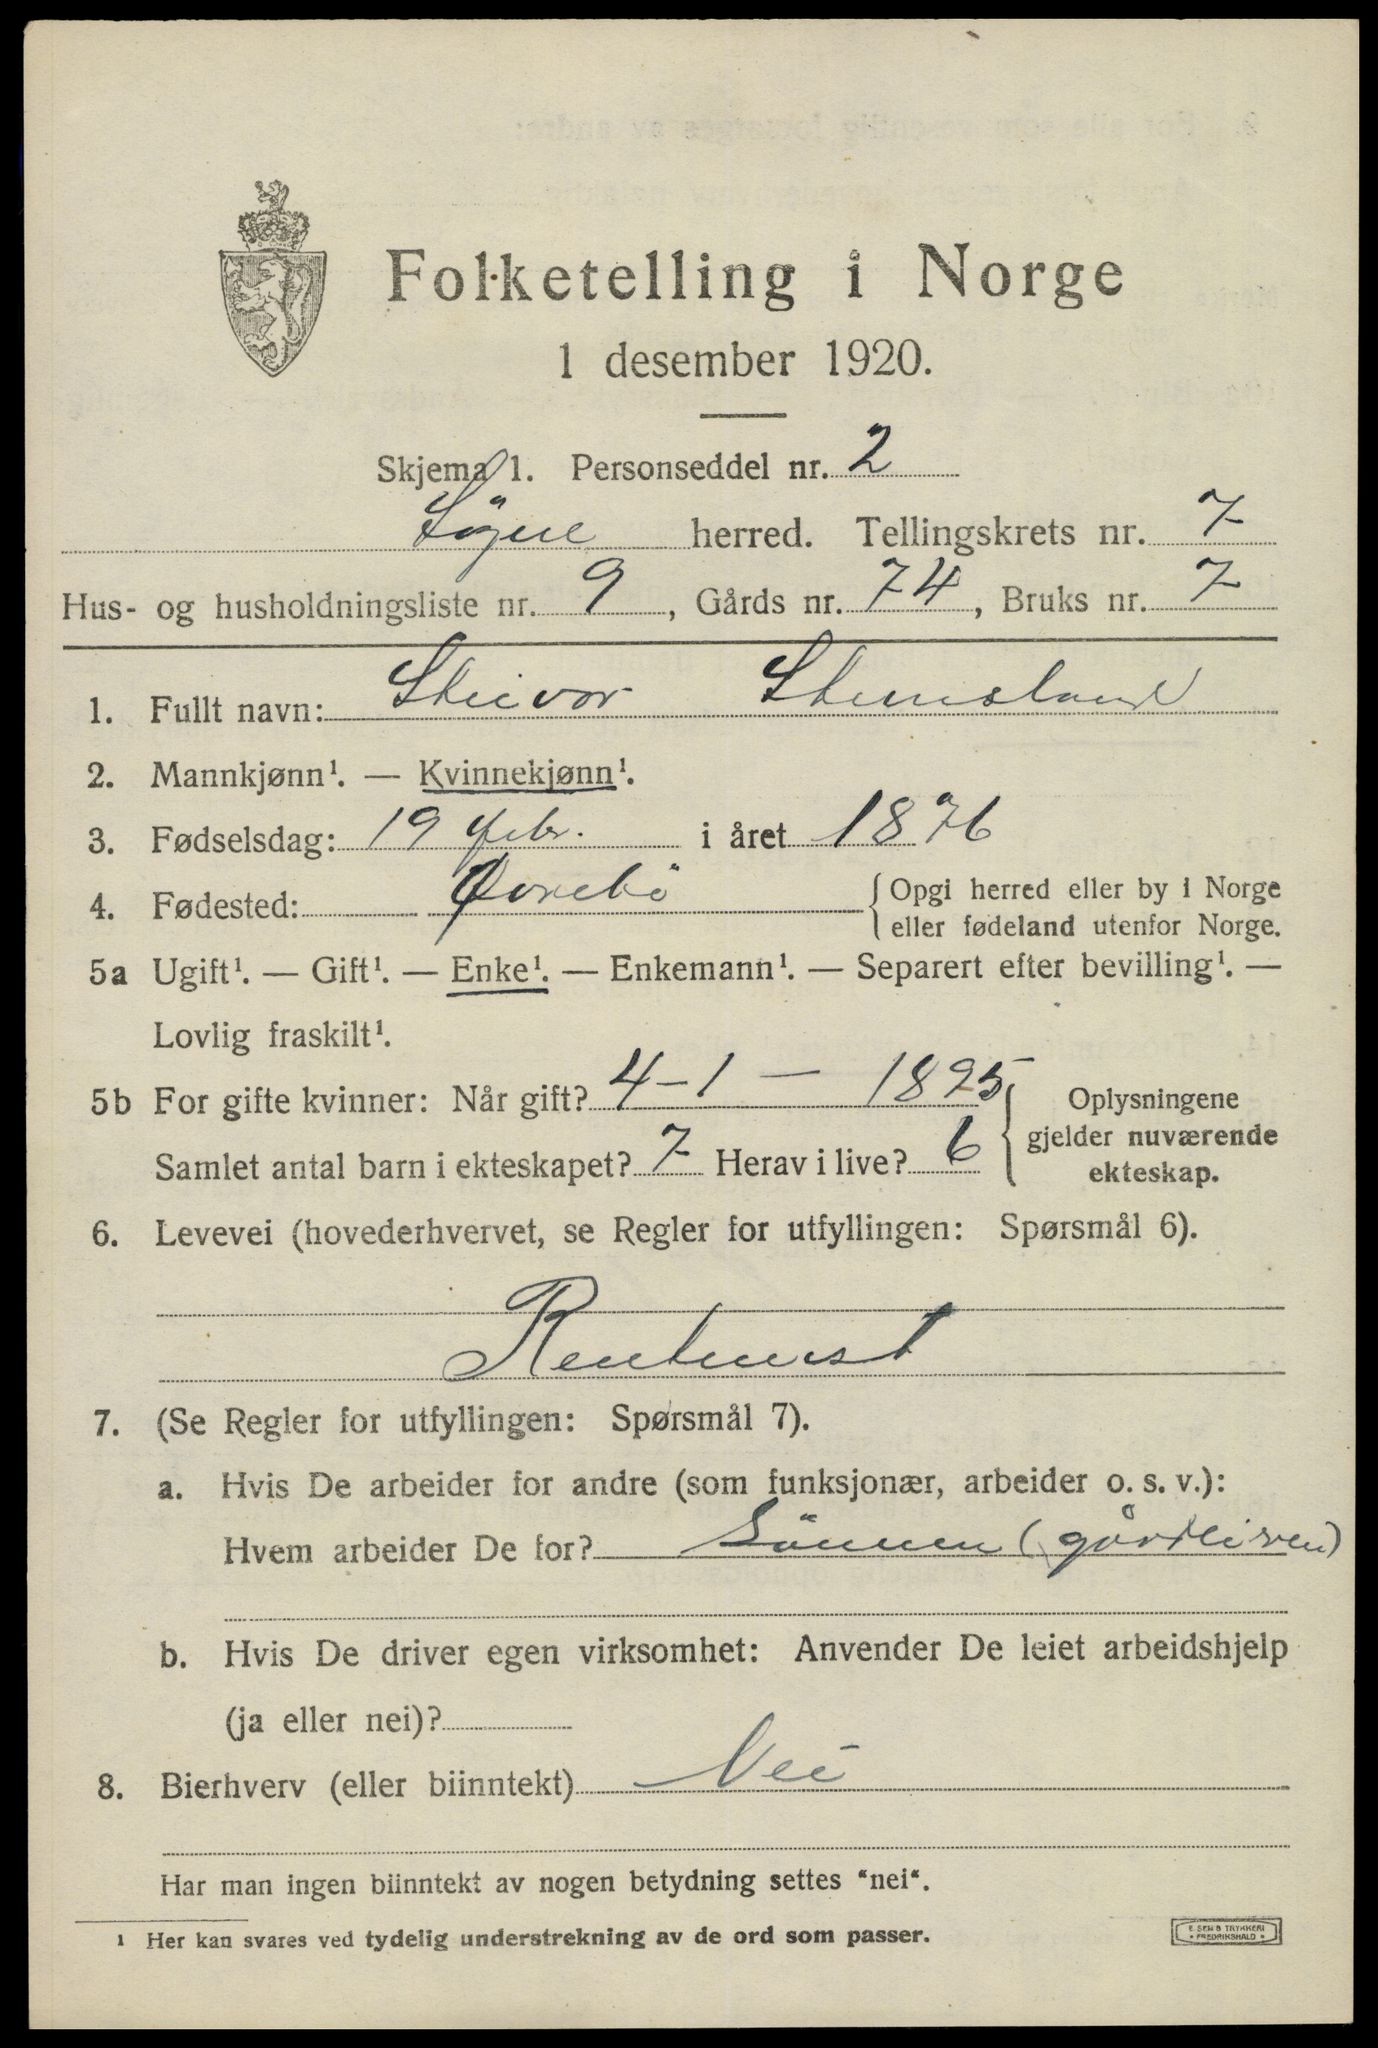 Folketelling i Norge
1 desember 1920.
Skjema 1. Personseddel nr. 2
Søgne herred. Tellingskrets nr. 7
Hus- og husholdningsliste nr. 9, Gårds nr. 74, Bruks nr. 7
1. Fullt navn: Steivor Stensland
2. Mannkjønn¹. — Kvinnekjønn¹.
3. Fødselsdag: 19 febr. i året 1876
4. Fødested: Øvrebö { Opgi herred eller by i Norge
eller fødeland utenfor Norge.
5a Ugift¹. — Gift¹. — Enke¹. — Enkemann¹. — Separert efter bevilling¹. —
Lovlig fraskilt¹.
5b For gifte kvinner: Når gift? 4-1 — 1895
Samlet antal barn i ekteskapet? 7 Herav i live? 6
{ Oplysningene
gjelder nuværende
ekteskap.
6. Levevei (hovederhvervet, se Regler for utfyllingen: Spørsmål 6).
7. (Se Regler for utfyllingen: Spørsmål 7).
a. Hvis De arbeider for andre (som funksjonær, arbeider o. s. v.):
Hvem arbeider De for? Sönnen
b. Hvis De driver egen virksomhet: Anvender De leiet arbeidshjelp
(ja eller nei)?
8. Bierhverv (eller biinntekt) Nei
Har man ingen biinntekt av nogen betydning settes "nei".
1 Her kan svares ved tydelig understrekning av de ord som passer.
E. SEM'S TRYKKERI
• FREDRIKSHALD •